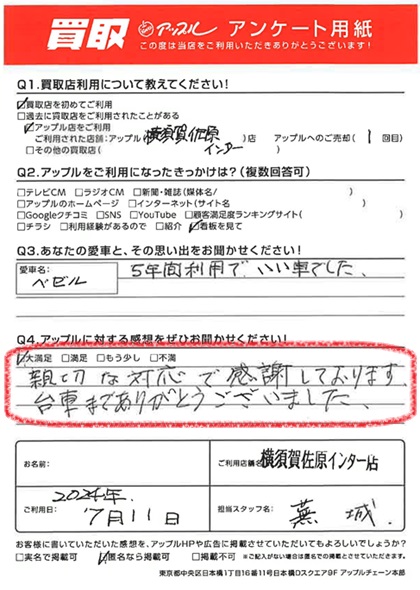 買取 アップル アンケート用紙
この度は当店をご利用いただきありがとうございます!
Q1.買取店利用について教えてください!
☑買取店を初めてご利用
□過去に買取店をご利用されたことがある
☑アップル店をご利用
ご利用された店舗:アップル(横須賀佐原インター)店 アップルへのご売却( 1 回目)
□その他の買取店( )
Q2.アップルをご利用になったきっかけは?(複数回答可)
□テレビCM □ラジオCM □新聞・雑誌(媒体名/ )
□アップルのホームページ □インターネット(サイト名 )
□Googleクチコミ □SNS □YouTube □顧客満足度ランキングサイト( )
□チラシ □利用経験があるので □紹介 ☑看板を見て
Q3.あなたの愛車と、その思い出をお聞かせください!
愛車名: ベゼル
5年間利用で、いい車でした、
Q4.アップルに対する感想をぜひお聞かせください!
☑大満足 □満足 □もう少し □不満
親切な対応で感謝しております。
台車までありがとうございました、
お名前:
ご利用店舗名: 横須賀佐原インター店
ご利用日: 2024年
7月11日
担当スタッフ名: 蕪城
お客様に書いていただいた感想を、アップルHPや広告に掲載させていただいてもよろしいでしょうか?
□実名で掲載可 ☑匿名なら掲載可 □掲載不可 ※ご記入がない場合は匿名での掲載とさせていただきます。
東京都中央区日本橋1丁目16番11号日本橋Dスクエア9F アップルチェーン本部